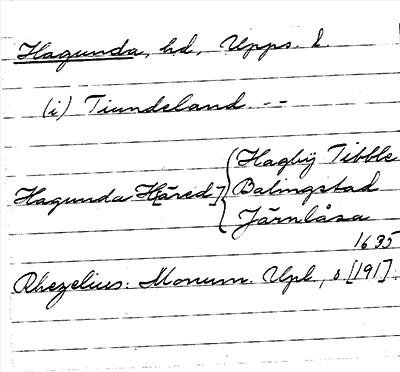 Hagunda, hd, Upps. l.
(i) Tiundeland. --
Hagunda H[äred] { Hagby Tibble
Balingstad
Järnlåsa
1635
Rhezelius: Monum. Upl., s. [191].